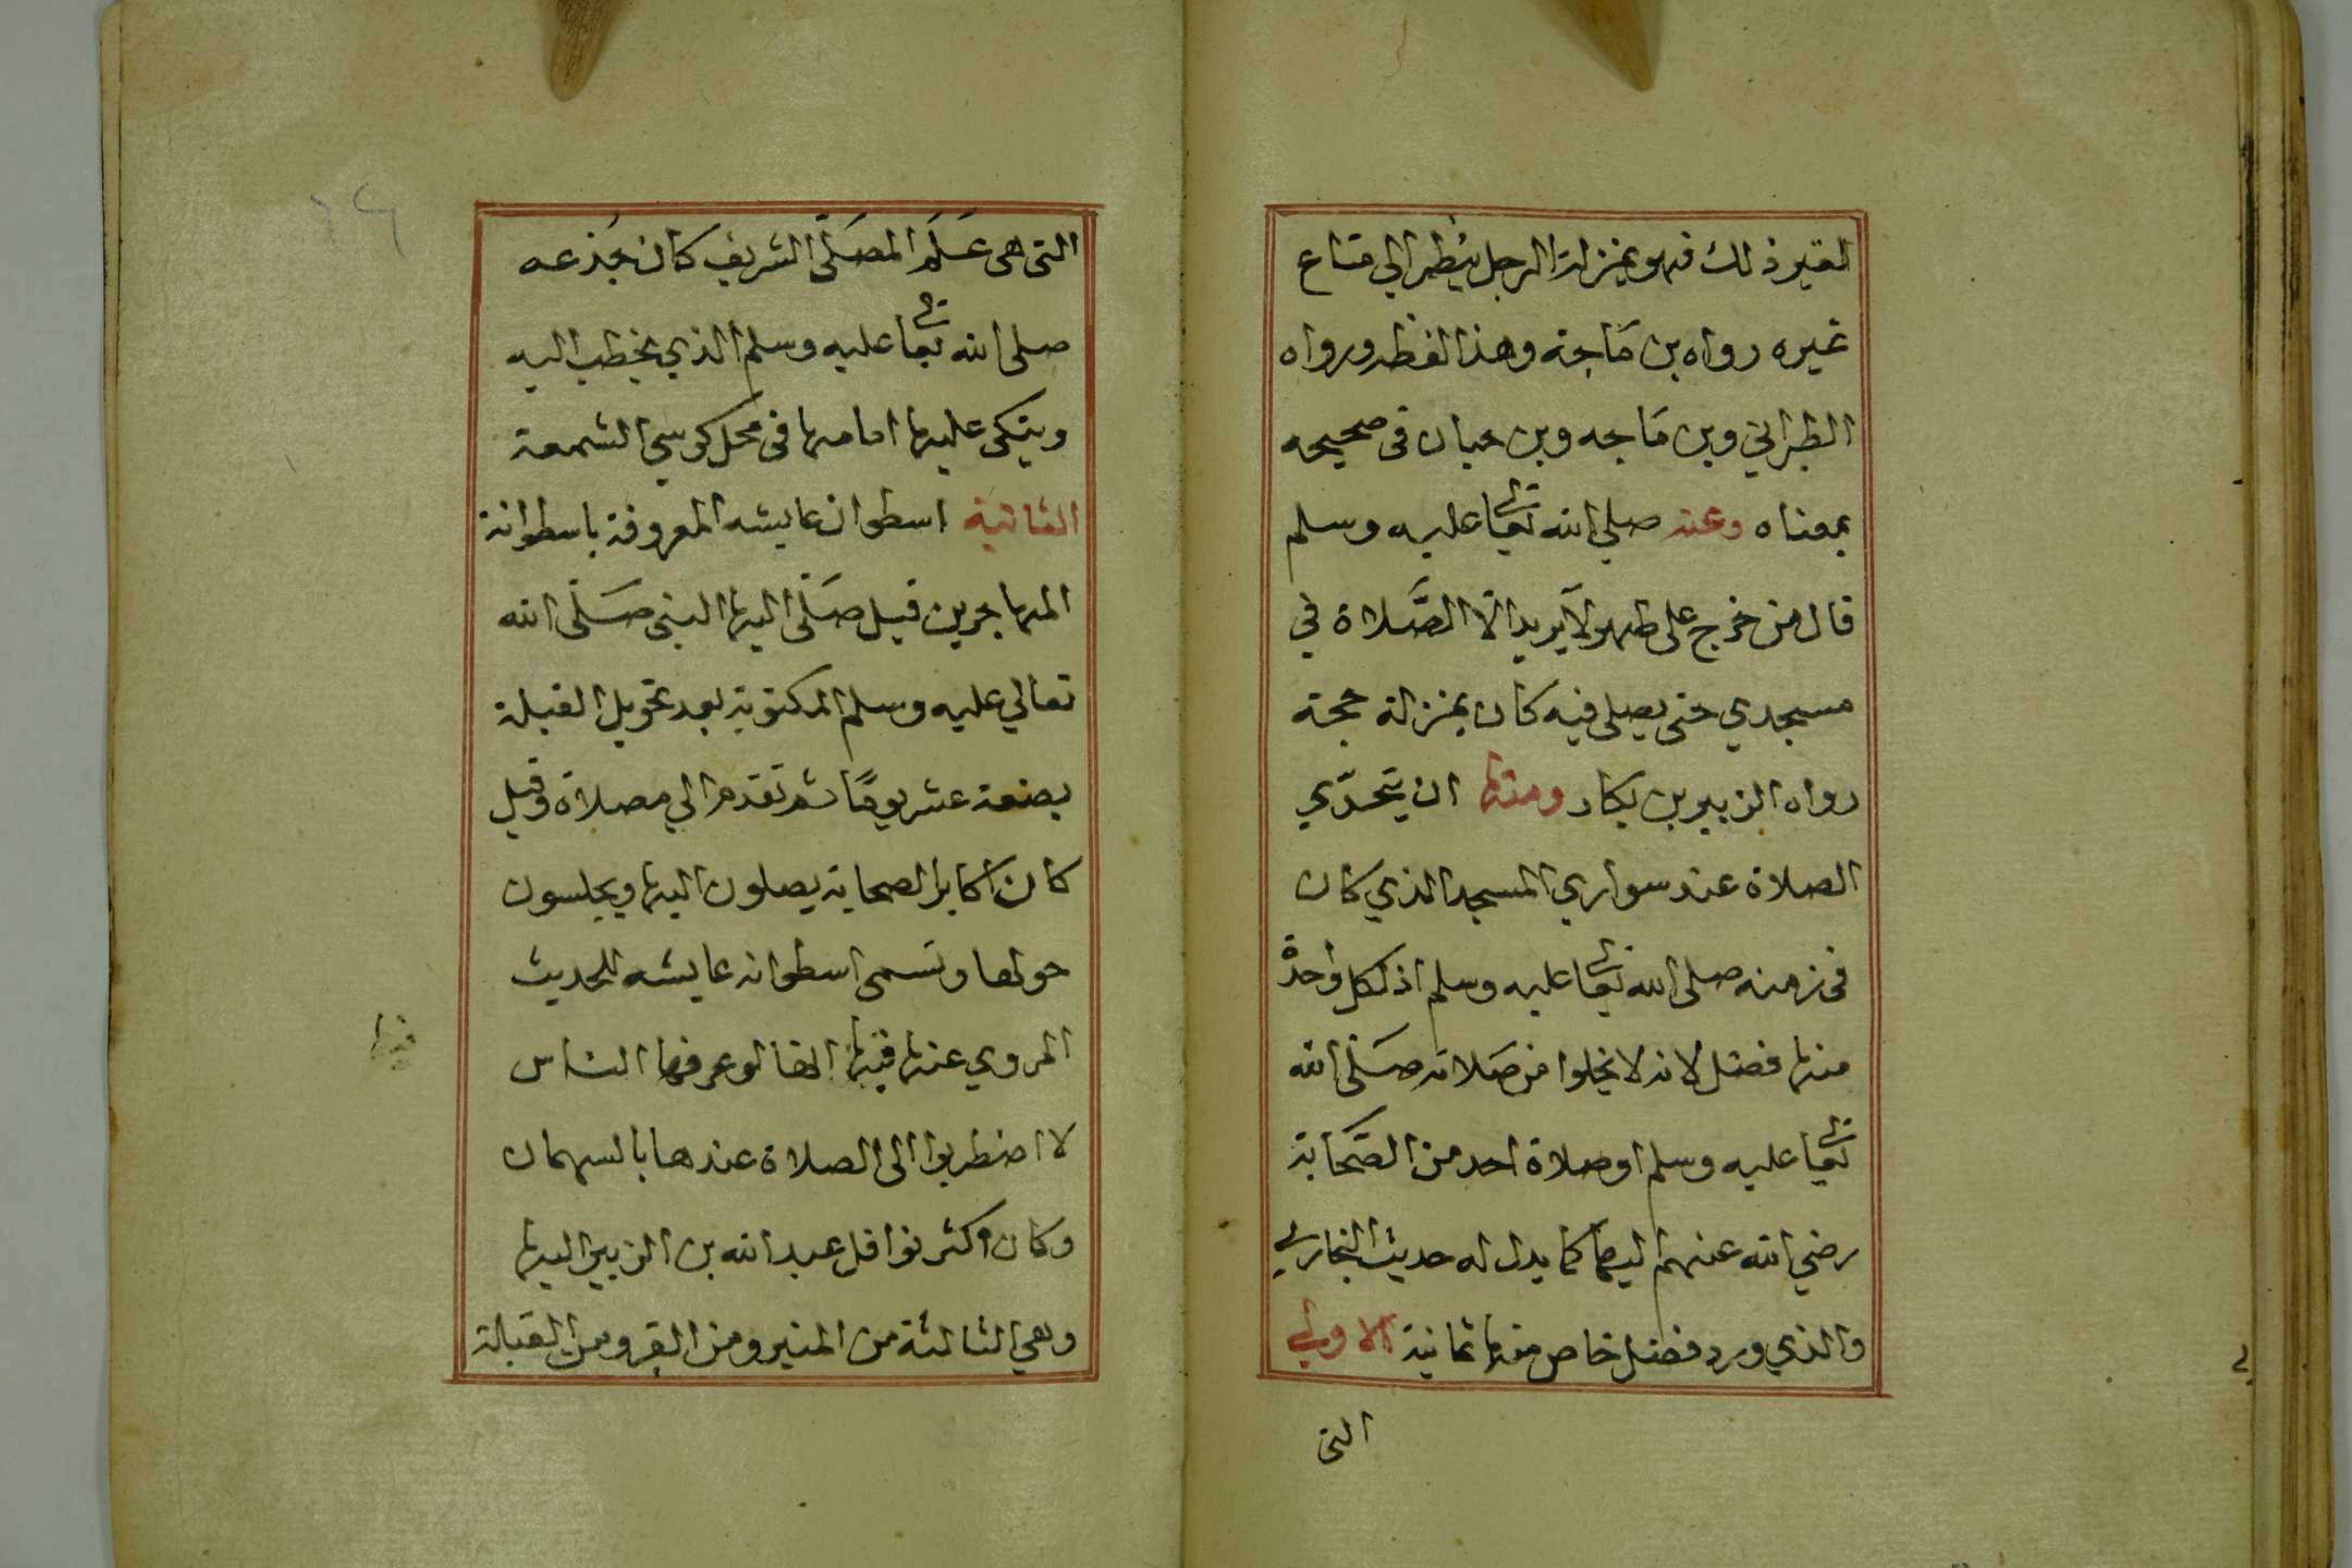 لغير ذلك فهو بمنزلة الرجل ينظر الي متاع
غيره رواه بن مَاجة وهذا لفظه ورواه
الطبراني وبن مَاجه وبن حبان فى صحيحه
بمعناه وعنه صلي الله تعالى عليه وسلم
قال من خرج على طهر لا يريد الّا الصَّلاة في
مسجدي حتى يصلى فيه كان بمنزلة حجة
رواه الزبير بن بكار ومنها ان يتحدّي
الصلاة عند سواري المسجد الذي كان
فى زمنه صلى الله تعالى عليه وسلم اذ لكل واحدة
منها فضل لانه لا يخلوا من صَلاته صَلى الله
تعالى عليه وسلم او صلاة احد من الصَحَابة
رضي الله عنهم اليها كما يدل له حديث البخاري
والذي ورد فضل خاص منها ثمانية الاولي
التى
التى هى عَلَم المصَلّى الشريف كان جُذعه
صلى الله تعالى عليه وسلم الذي يخطب اليه
ويتكى عليها امامها فى محل كرسي الشمعة
الثانية اسطوان عايشه المعروفة باسطوانة
المهاجرين قيل صَلّى اليها النبى صَلّى الله
تعالي عليه وسلم المكتوبة بعد تحويل القبلة
بضعة عشر يومًا ثم تقدم الي مصلاه وقيل
كان اكابر الصحابة يصلون اليها ويجلسون
حولها وتسمى اسطوانه عايشه للحديث
المروي عنها فيها انها لو عرفها الناس
لا اضطربوا الى الصلاة عندها بالسهمان
وكان اكثر نوافل عبد الله بن الزبير اليها
وهي الثالثة من المنبر ومن القبر ومن القبلة